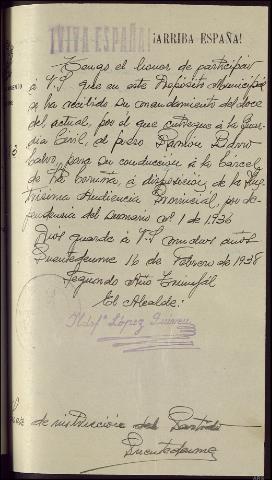 ¡VIVA ESPAÑA! ¡ARRIBA ESPAÑA!
Tengo el honor de participar
á V.S. que en este Depósito Municipal
se ha recibido su mandamiento del doce
del actual, por el que entregue á la Guar-
dia Civil, al preso Ramón
para su conducción á la carcel
de La Coruña, á disposición de la Ilus-
trísima Audiencia Provincial, por de-
pendencia del sumario nº 1 de 1936
Dios guarde á V.S. muchos años
Puentedeume 16 de Febrero de 1938
Segundo Año Triunfal
El Alcalde:
Ildefº López
de instrucción del Partido
Puentedeume